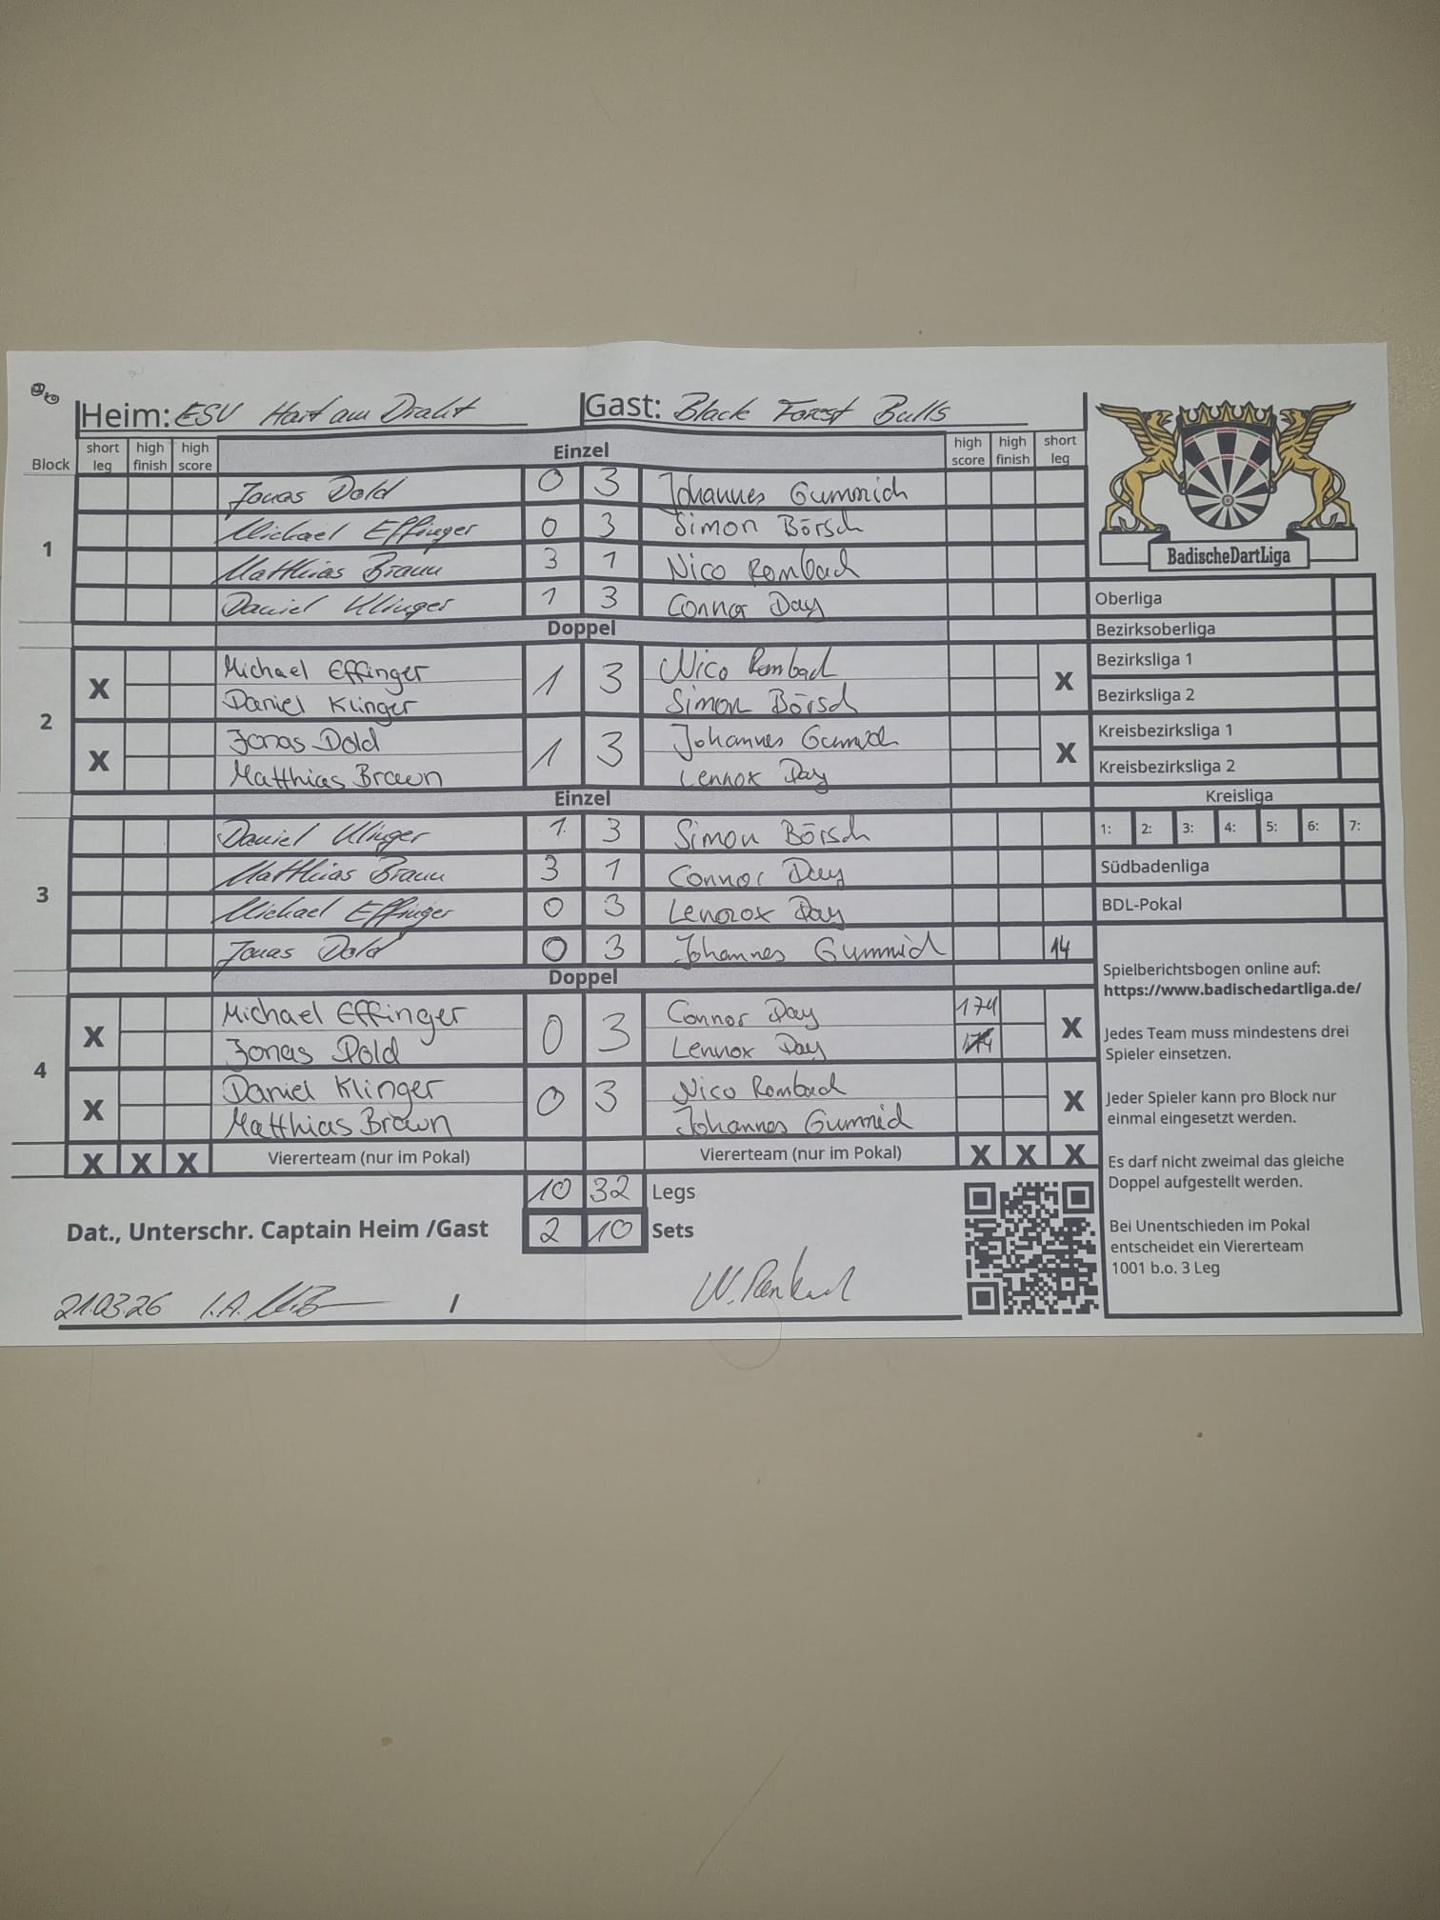 Heim: ESV Hart am Draht Gast: Black Forest Bulls
Block short leg high finish high score Einzel high score high finish short leg
1
Jonas Dold 0 3 Johannes Gummich
Michael Effinger 0 3 Simon Börsch
Matthias Braun 3 1 Nico Rombach
Daniel Klinger 1 3 Connor Day
Doppel
2
X Michael Effinger 1 3 Nico Rombach X
Daniel Klinger Simon Börsch
X Jonas Dold 1 3 Johannes Gummich X
Matthias Braun Lennox Day
Einzel
3
Daniel Klinger 1 3 Simon Börsch
Matthias Braun 3 1 Connor Day
Michael Effinger 0 3 Lennox Day
Jonas Dold 0 3 Johannes Gummich 14
Doppel
4
X Michael Effinger 0 3 Connor Day 174 X
Jonas Dold Lennox Day
X Daniel Klinger 0 3 Nico Rombach X
Matthias Braun Johannes Gummich
X X X Viererteam (nur im Pokal) Viererteam (nur im Pokal) X X X
10 32 Legs
Dat., Unterschr. Captain Heim /Gast 2 10 Sets
21.03.26 i.A. /
BadischeDartLiga
Oberliga
Bezirksoberliga
Bezirksliga 1
Bezirksliga 2
Kreisbezirksliga 1
Kreisbezirksliga 2
Kreisliga
1: 2: 3: 4: 5: 6: 7:
Südbadenliga
BDL-Pokal
Spielberichtsbogen online auf:
https://www.badischedartliga.de/
Jedes Team muss mindestens drei
Spieler einsetzen.
Jeder Spieler kann pro Block nur
einmal eingesetzt werden.
Es darf nicht zweimal das gleiche
Doppel aufgestellt werden.
Bei Unentschieden im Pokal
entscheidet ein Viererteam
1001 b.o. 3 Leg